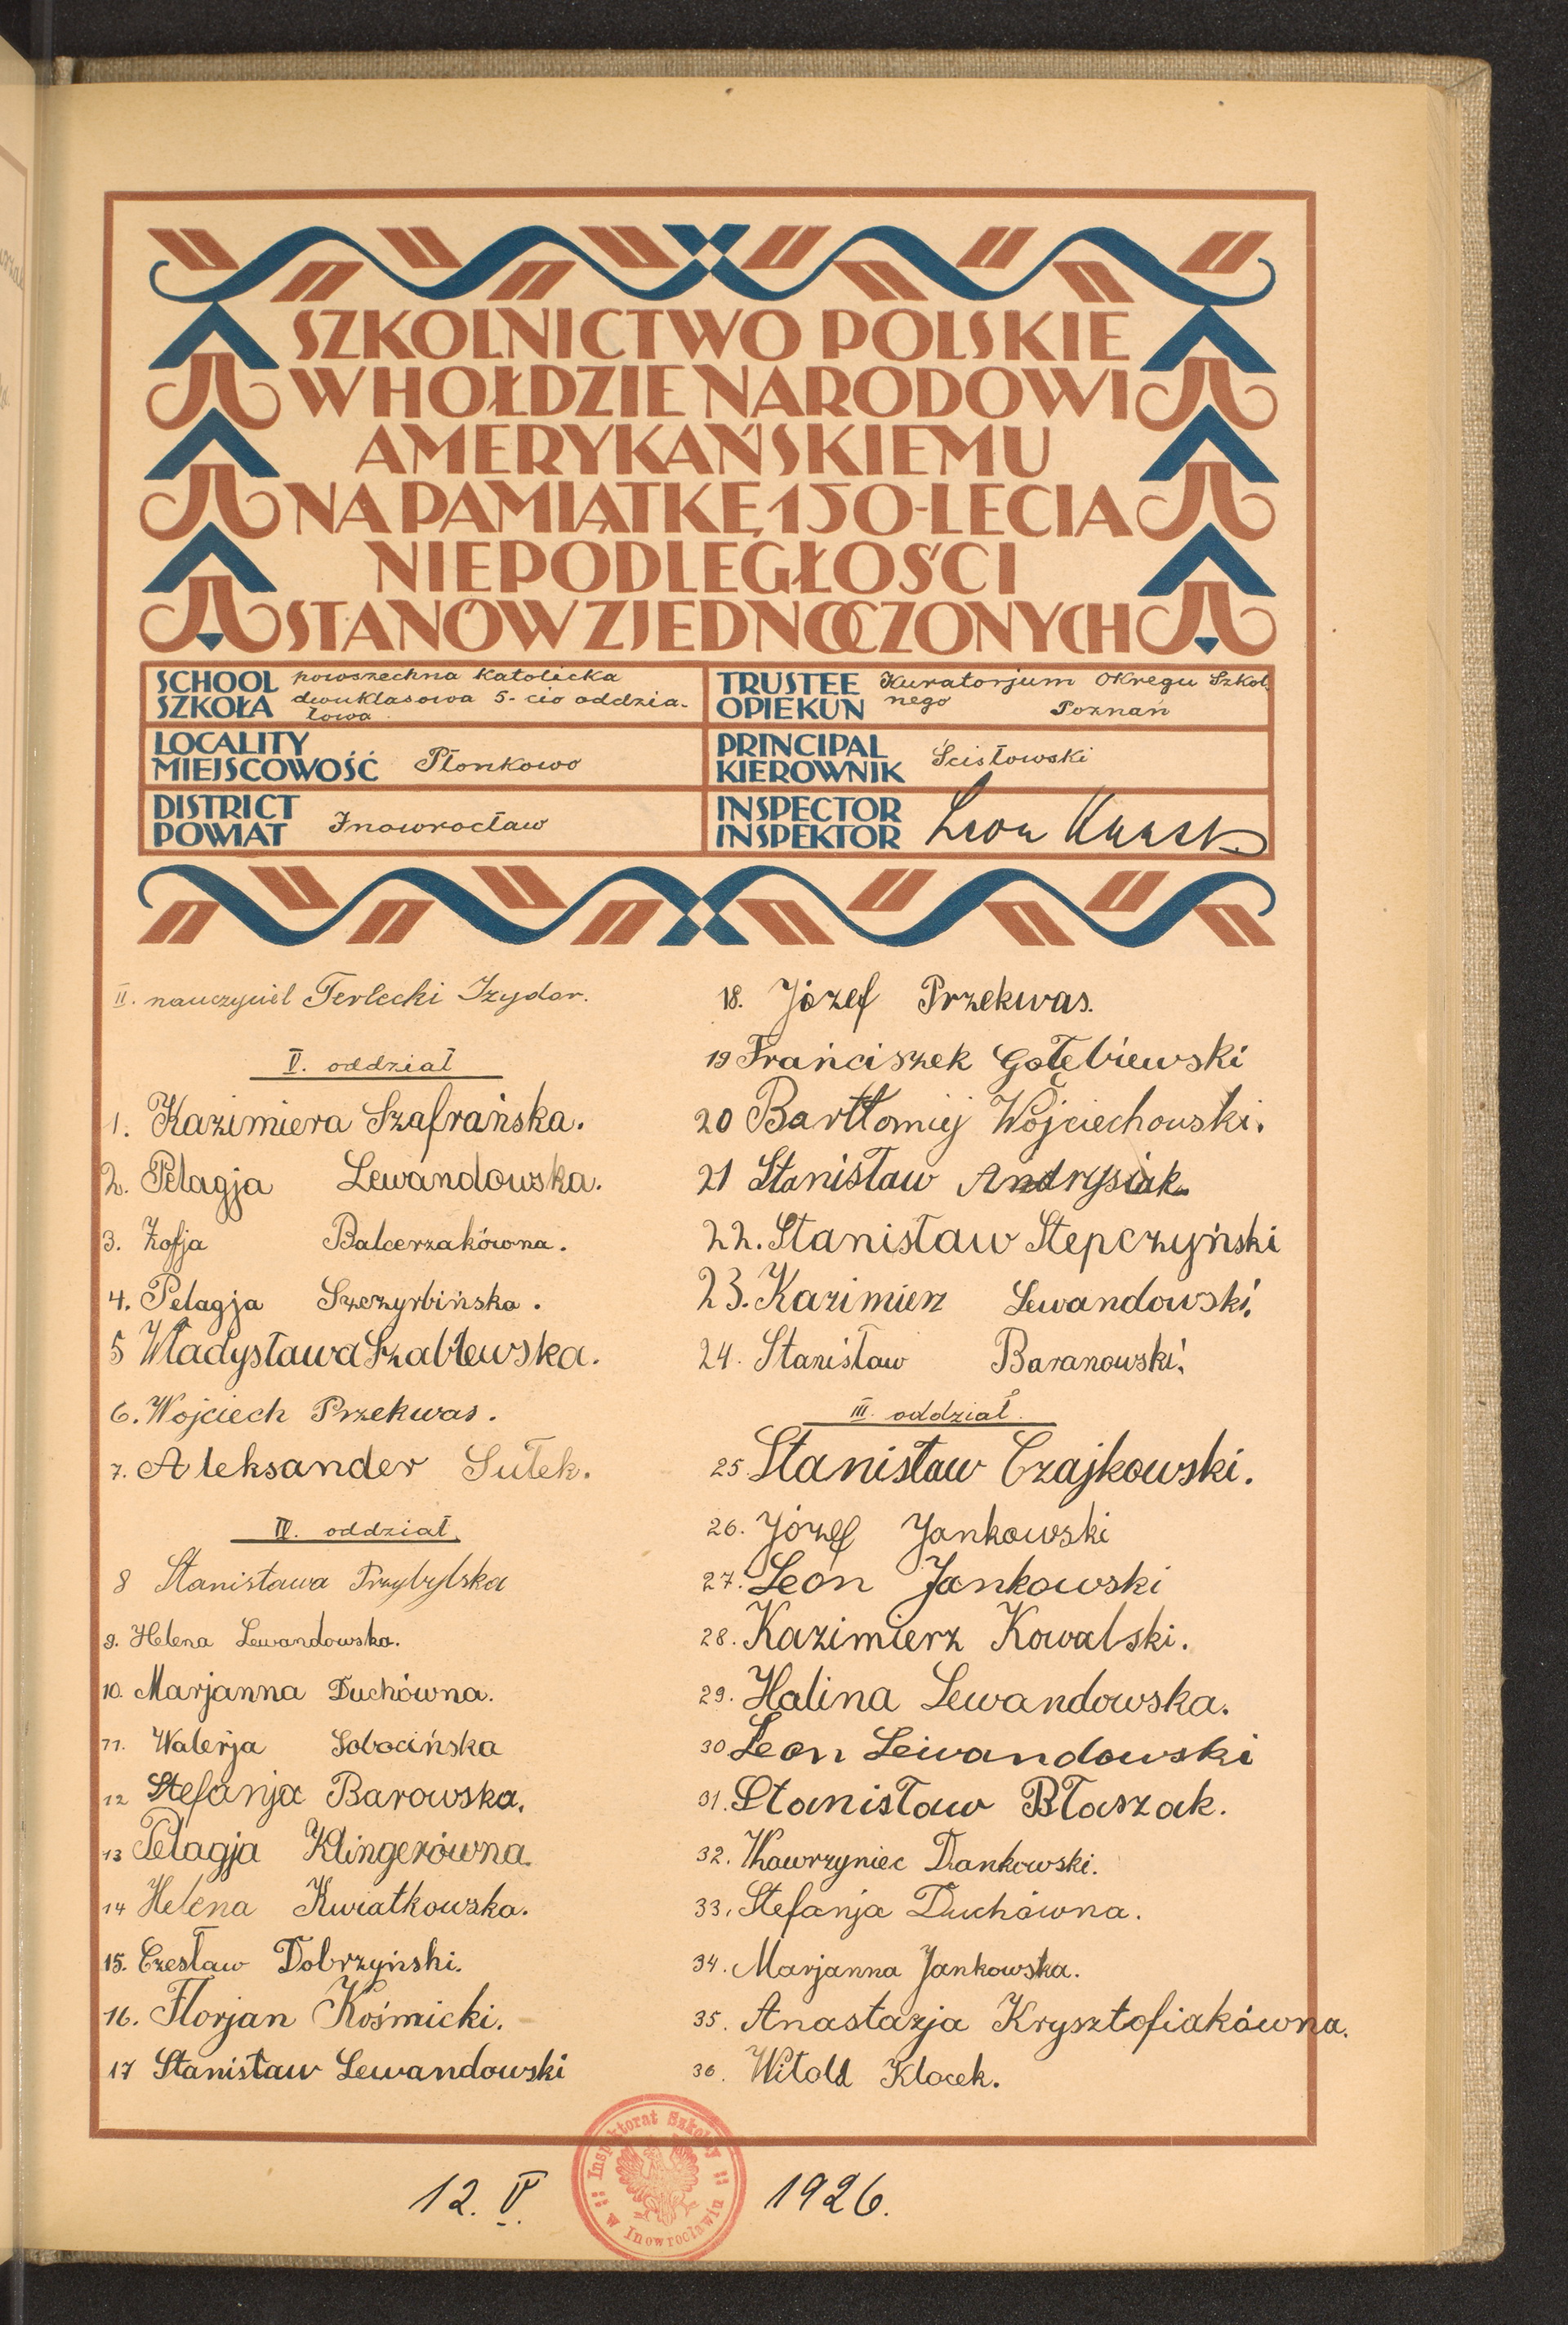 SZKOLNICTWO POLSKIE
W HOŁDZIE NARODOWI
AMERYKAŃSKIEMU
NA PAMIĄTKĘ 150-LECIA
NIEPODLEGŁOŚCI
STANÓW ZJEDNOCZONYCH
SCHOOL
SZKOŁA
powszechna katolicka
dwuklasowa 5-cio oddzia-
łowa
TRUSTEE
OPIEKUN
Kuratorjum Okręgu Szkol-
nego Poznań
LOCALITY
MIEJSCOWOŚĆ
Płonkowo
PRINCIPAL
KIEROWNIK
Ścisłowski
DISTRICT
POWIAT
Inowrocław
INSPECTOR
INSPEKTOR
Leon
II. nauczyciel Terlecki Izydor.
V. oddział
1. Kazimiera Szafrańska.
2. Pelagja Lewandowska.
3. Zofja Balcerzakówna.
4. Pelagja Szczyrbińska.
5 Władysława Szablewska.
6. Wojciech Przekwas.
7. Aleksander Sułek.
IV. oddział
8 Stanisława Przybylska
9. Helena Lewandowska.
10. Marjanna Duchówna.
11. Walerja Sobocińska
12 Stefanja Barowska.
13 Pelagja Klingerówna.
14 Helena Kwiatkowska.
15. Czesław Dobrzyński.
16. Florjan Kośmicki.
17 Stanisław Lewandowski
18. Józef Przekwas.
19 Frańciszek Gołębiewski
20 Bartłomiej Wojciechowski.
21 Stanisław Andrysiak.
22. Stanisław Stępczyński
23. Kazimierz Lewandowski.
24. Stanisław Baranowski.
III. oddział.
25. Stanisław Czajkowski.
26. Józef Jankowski
27. Leon Jankowski
28. Kazimierz Kowalski.
29. Halina Lewandowska.
30 Leon Lewandowski
31. Stanisław Błaszak.
32. Wawrzyniec Dankowski.
33. Stefanja Duchówna.
34. Marjanna Jankowska.
35. Anastazja Krysztofiakówna.
36. Witold Klocek.
Inspektorat Szkolny
w Inowrocławiu
12. V. 1926.